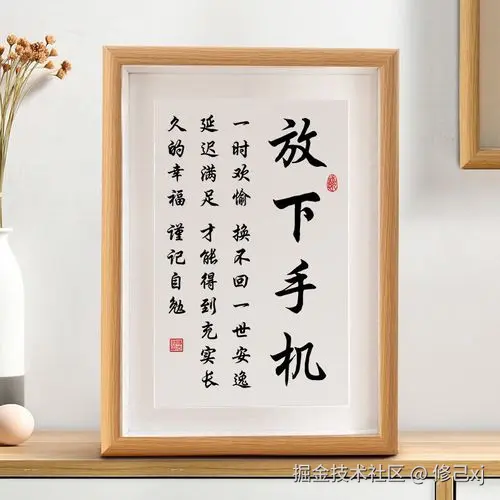 放下手机
一时欢愉 换不回一世安逸
延迟满足 才能得到充实长
久的幸福 谨记自勉
掘金技术社区 @ 修己xj